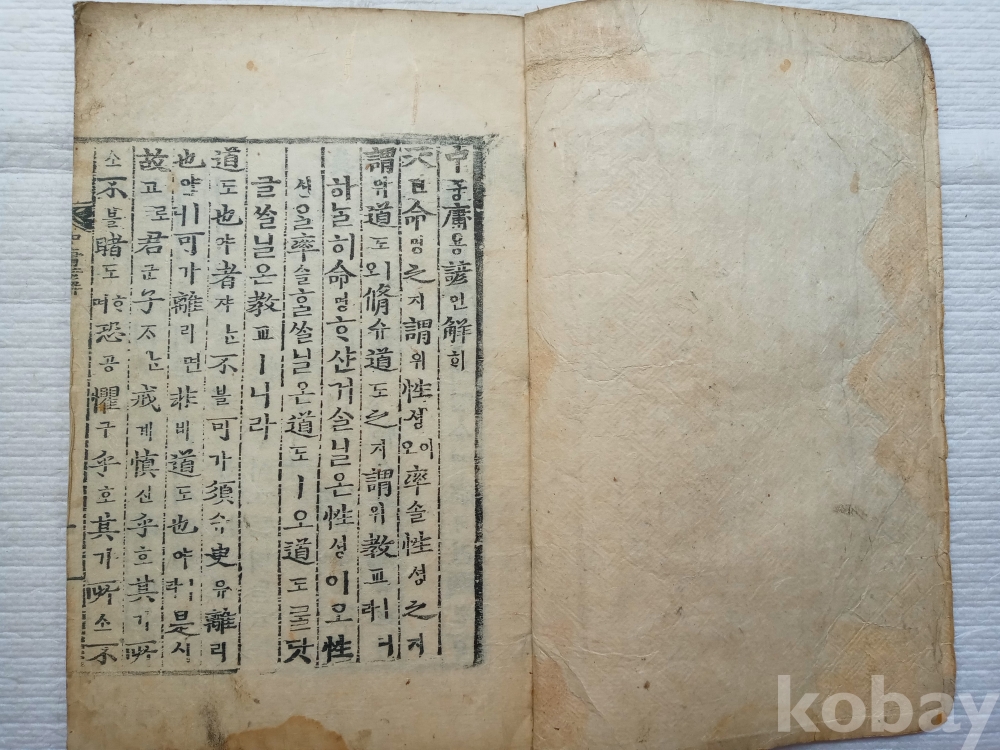 中듕庸용諺언解ᄒᆡ
天텬命명之지謂위性셩이오率솔性셩之지
謂위道도ㅣ오脩슈道도之지謂위敎교ㅣ니라
하ᄂᆞᆯ히命명ᄒᆞ샨거ᄉᆞᆯ닐온性셩이오性
셩을率솔ᄒᆞᆯᄊᆞᆯ닐온道도ㅣ오道도ᄅᆞᆯ닷
글ᄊᆞᆯ닐온敎교ㅣ니라
道도也야者쟈ᄂᆞᆫ不블可가須슈臾유離리
也야ㅣ니可가離리면非비道도也야ㅣ라是시
故고로君군子ᄌᆞᄂᆞᆫ戒계愼신乎호其기所
소不블睹도ᄒᆞ며恐공懼구乎호其기所소不
kobay